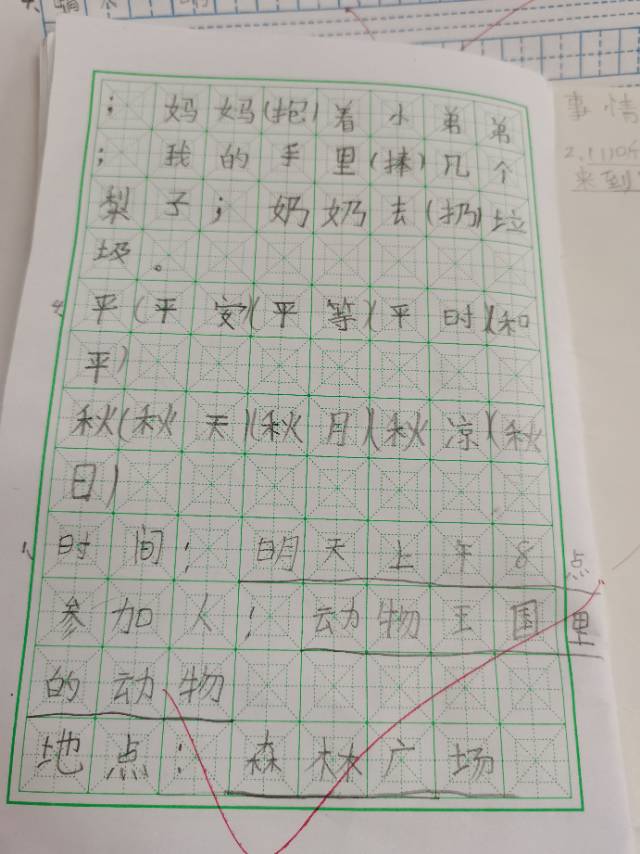 ；妈妈(抱)着小弟弟
；我的手里(捧)几个
梨子；奶奶去(扔)垃
圾。
4、平(平安)(平等)(平时)(和
平)
秋(秋天)(秋月)(秋凉)(秋
日)
1、时间：明天上午8点
参加人：动物王国里
的动物
地点：森林广场
事情
来到